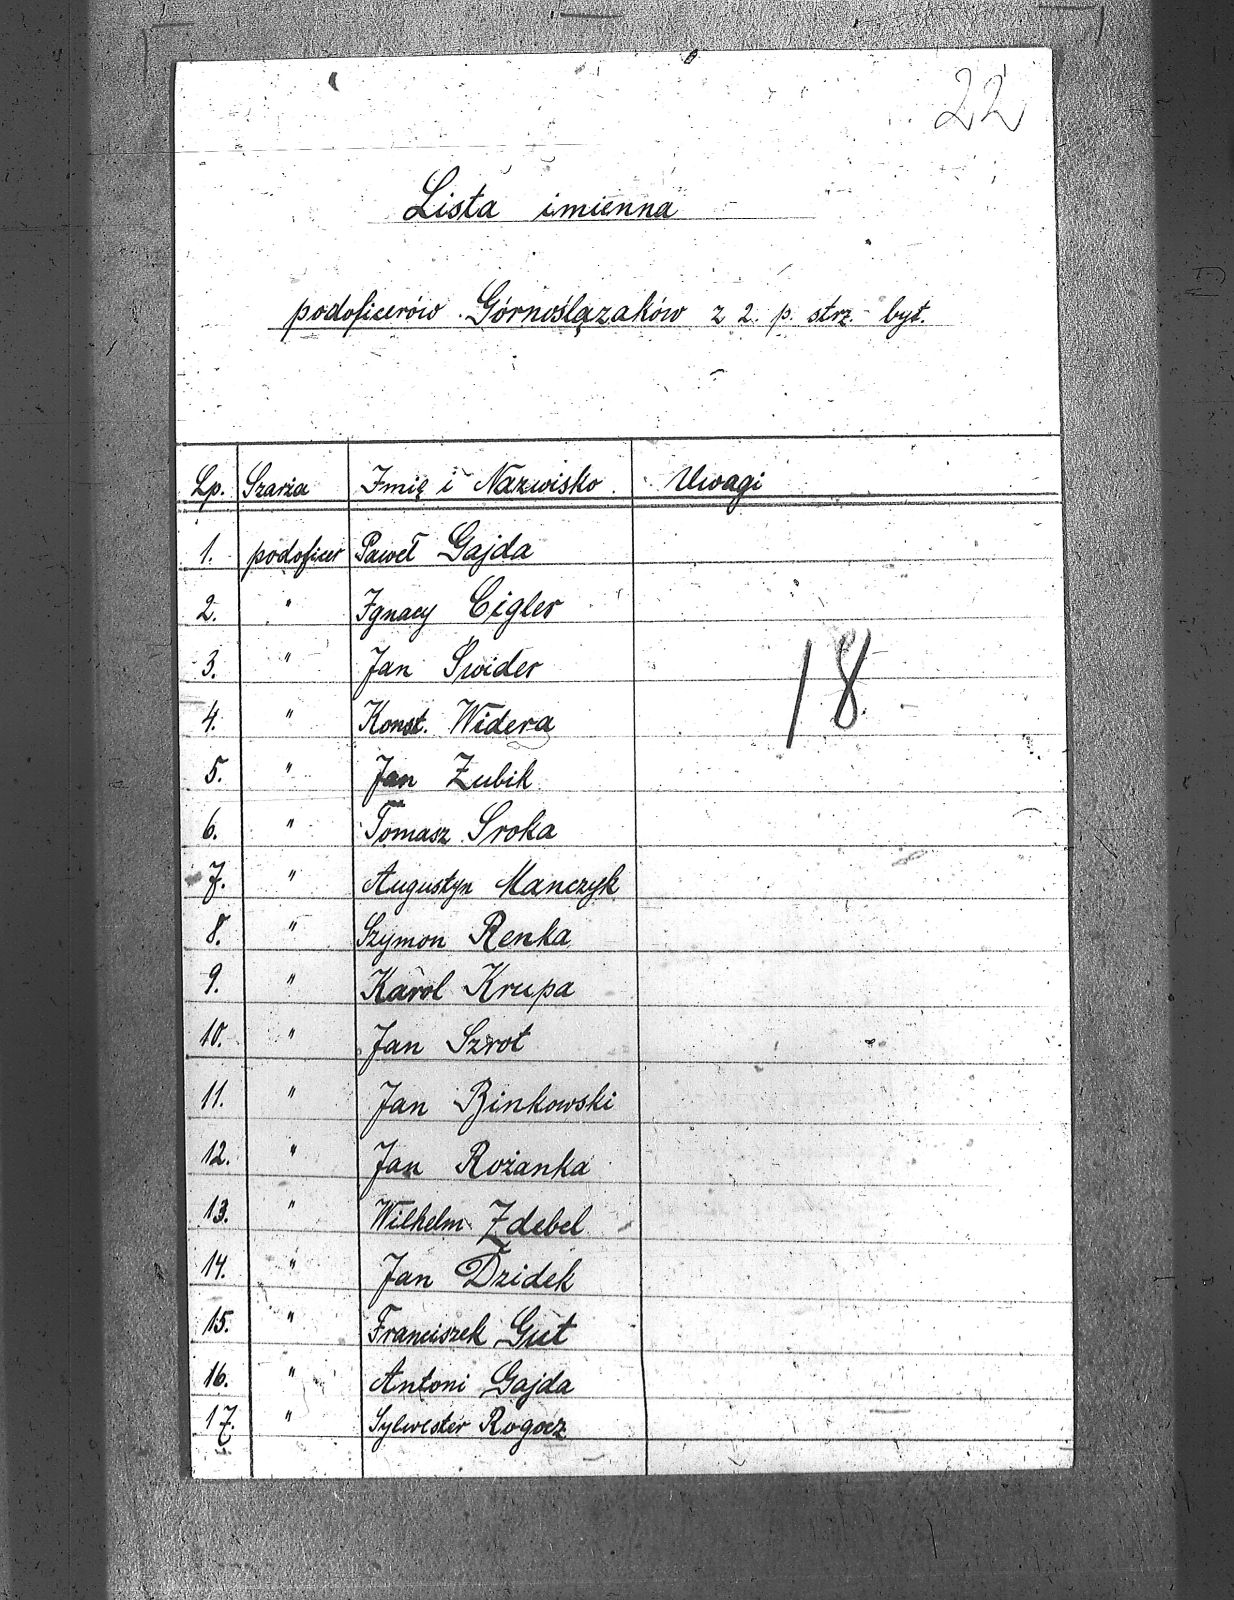 22
Lista imienna
podoficerów Górnoślązaków z 2. p. strz. byt.
Lp. Szarża Imię i Nazwisko Uwagi
1. podoficer Paweł Gajda
2. " Ignacy Cigler
3. " Jan Świder
18
4. " Konst. Widera
5. " Jan Żubik
6. " Tomasz Sroka
7. " Augustyn Manczyk
8. " Szymon Renka
9. " Karol Krupa
10. " Jan Szrot
11. " Jan Binkowski
12. " Jan Rożanka
13. " Wilhelm Zdebel
14. " Jan Dzidek
15. " Franciszek Gut
16. " Antoni Gajda
17. " Sylwester Rogocz